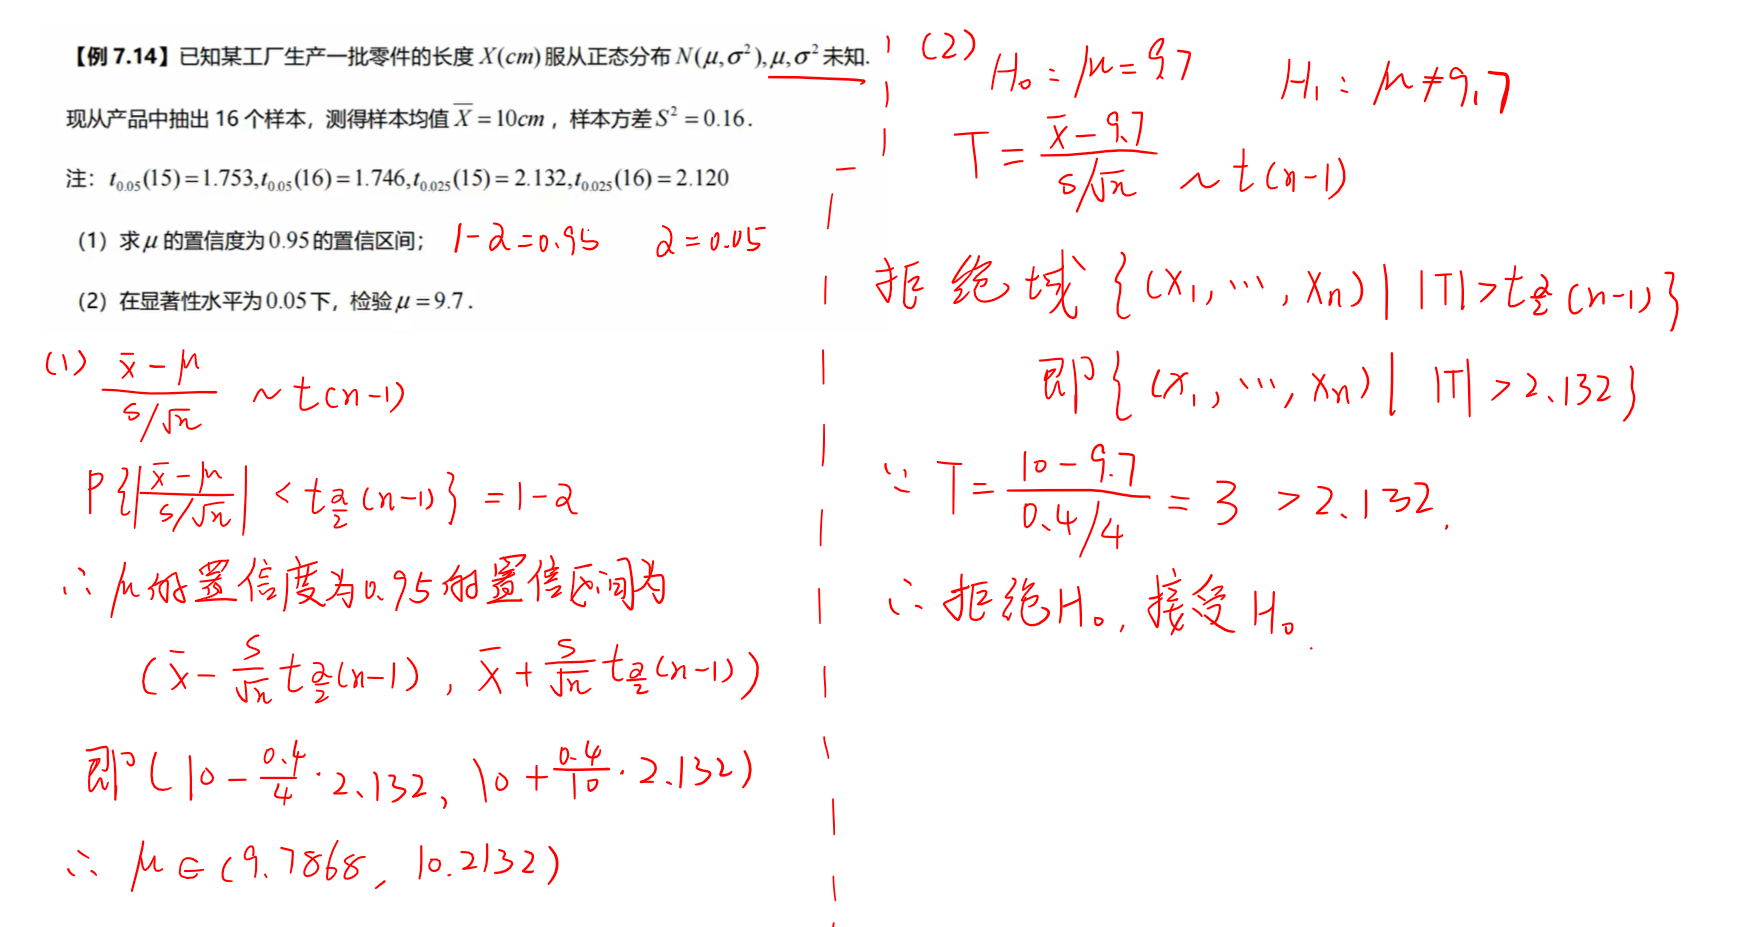 【例 7.14】已知某工厂生产一批零件的长度 X(cm) 服从正态分布 N(μ,σ²),μ,σ² 未知.
现从产品中抽出 16 个样本，测得样本均值 X̅ = 10cm ，样本方差 S² = 0.16 .
注：t₀.₀₅(15) = 1.753,t₀.₀₅(16) = 1.746,t₀.₀₂₅(15) = 2.132,t₀.₀₂₅(16) = 2.120
（1）求 μ 的置信度为 0.95 的置信区间； 1-α=0.95 α=0.05
（2）在显著性水平为 0.05 下，检验 μ = 9.7 .
(1) (x̅-μ)/(s/√n) ~ t(n-1)
P{|(x̅-μ)/(s/√n)| < t_{α/2}(n-1)} = 1-α
∴ μ的置信度为0.95的置信区间为
(x̅ - s/√n t_{α/2}(n-1) , x̅ + s/√n t_{α/2}(n-1))
即(10 - 0.4/4 · 2.132, 10 + 0.4/10 · 2.132)
∴ μ∈(9.7868, 10.2132)
(2) H₀: μ=9.7 H₁: μ≠9.7
T = (x̅-9.7)/(s/√n) ~ t(n-1)
拒绝域{(x₁, ⋯, xₙ) | |T|>t_{α/2}(n-1)}
即{(x₁, ⋯, xₙ) | |T| > 2.132}
∵ T = (10-9.7)/(0.4/4) = 3 > 2.132.
∴ 拒绝H₀, 接受H₀.